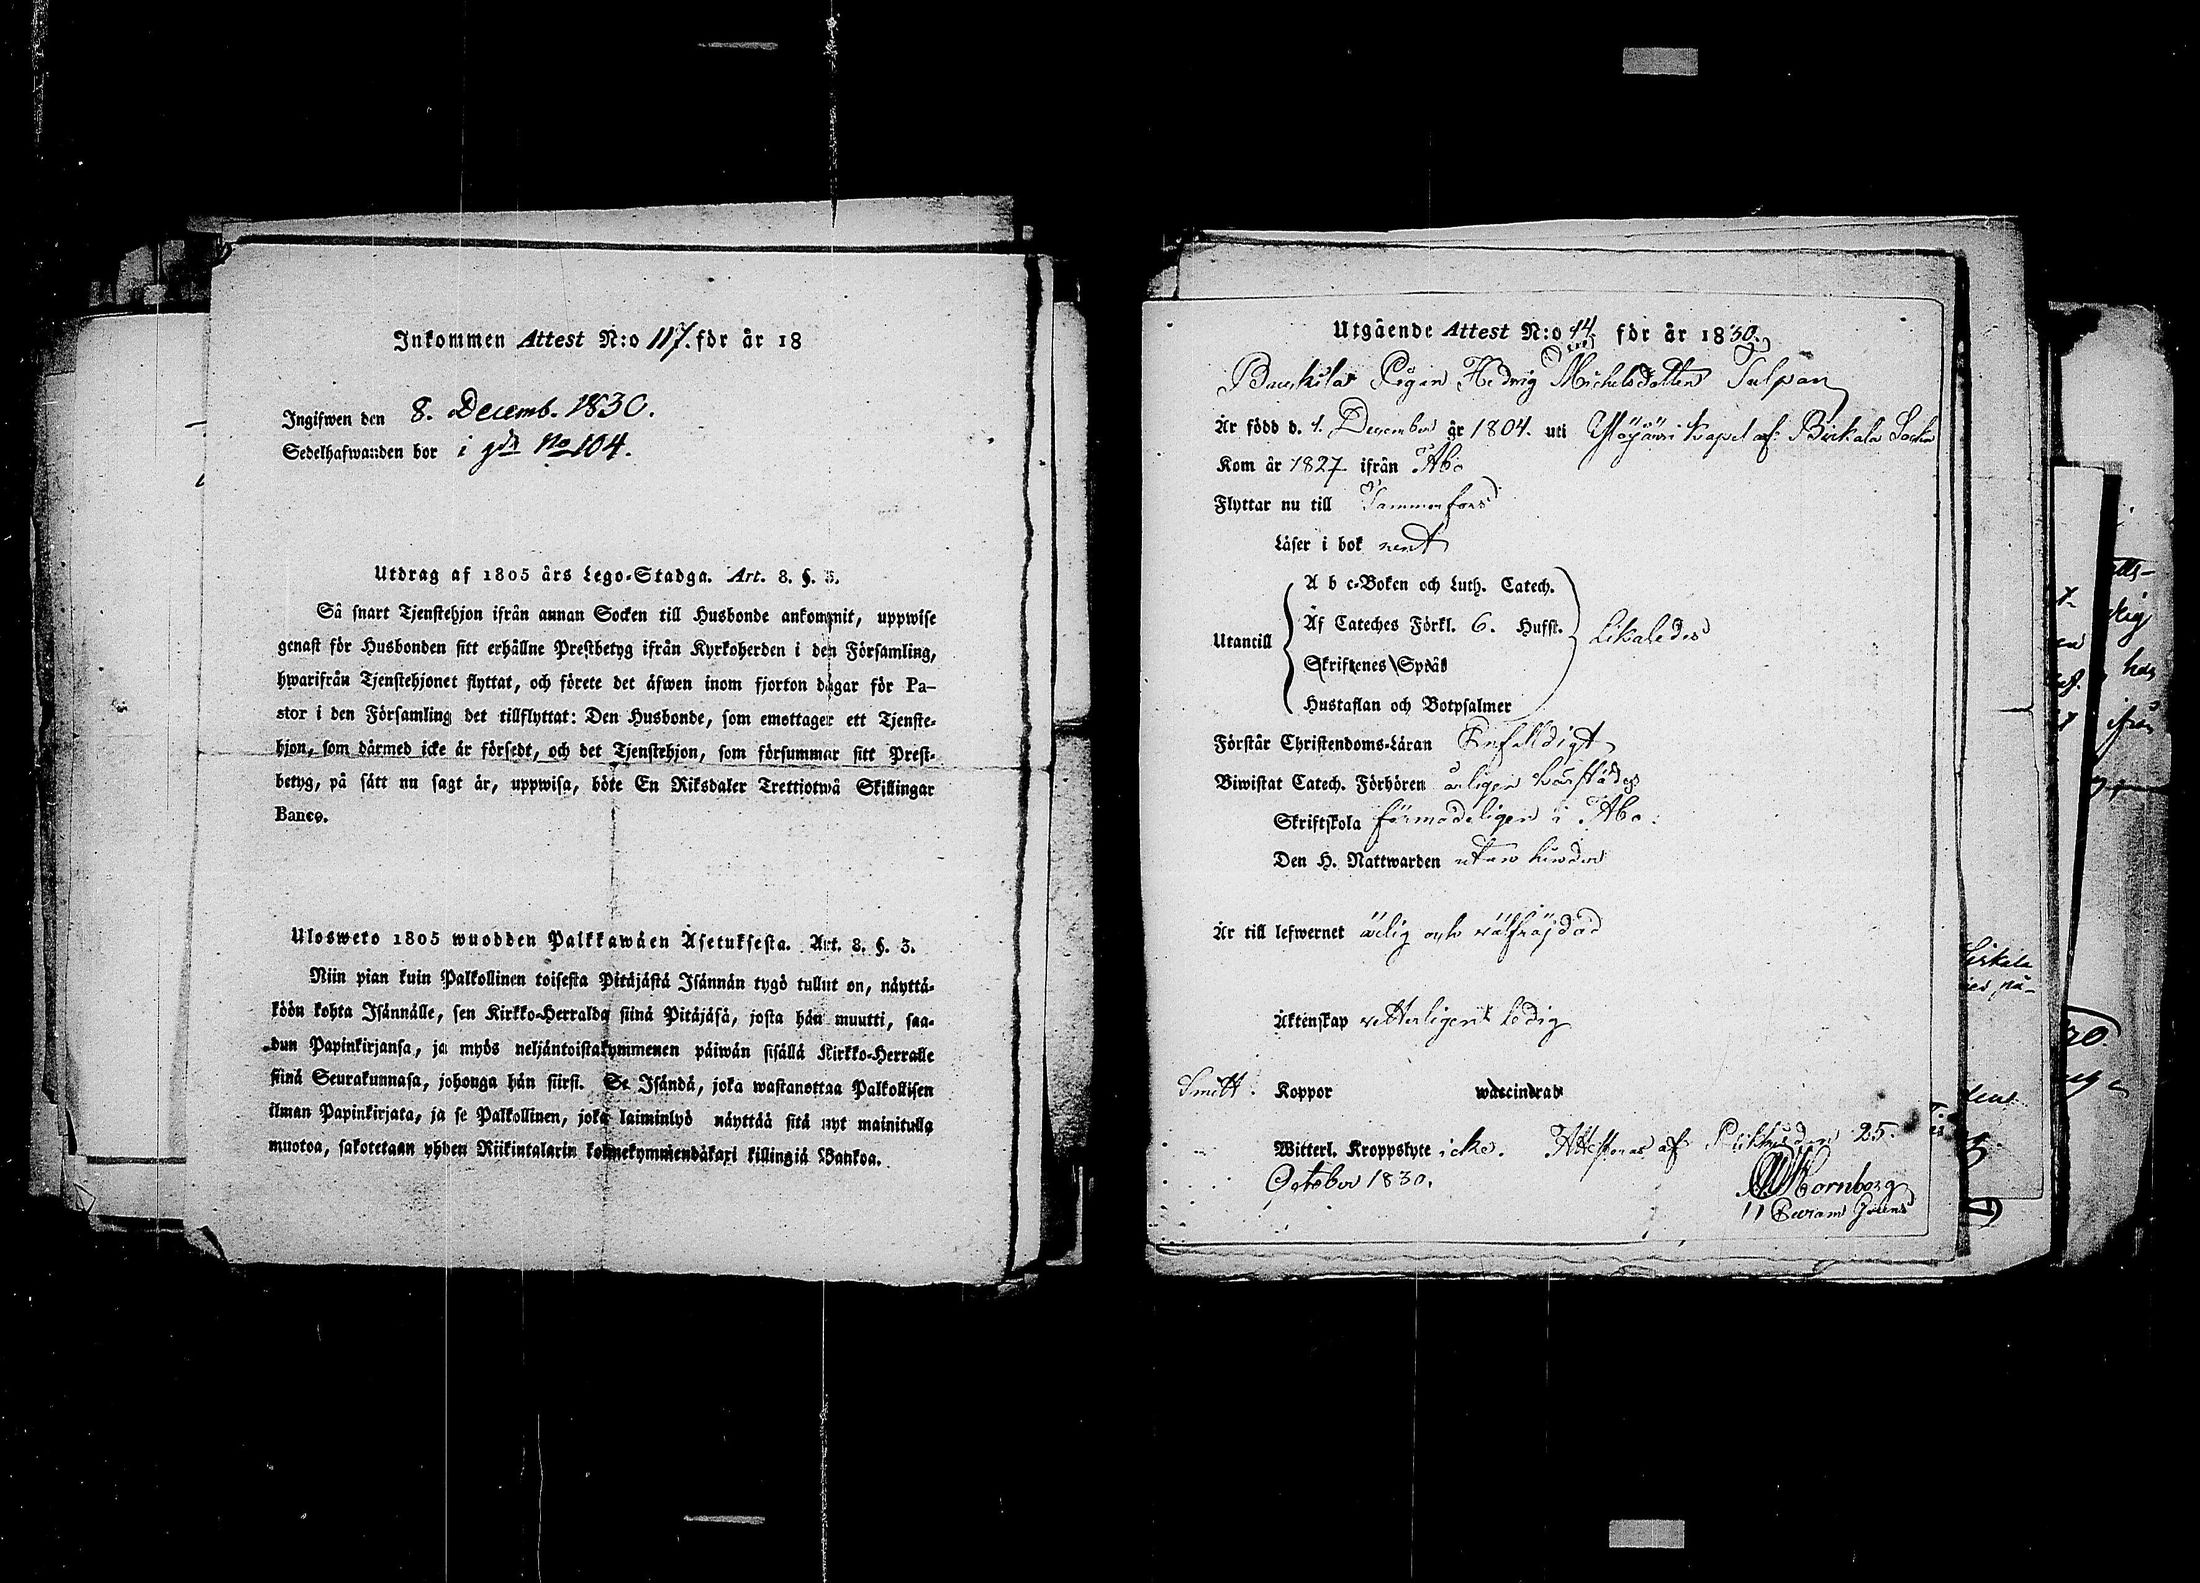 Inkommen Attest N:o 117. för år 18
Ingifwen den 8. Decemb. 1830.
Sedelhafwanden bor i gdn No 104.
Utdrag af 1805 års Lego-Stadga. Art. 8. §. 3.
Så snart Tjenstehjon ifrån annan Socken till Husbonde ankommit, uppwise
genast för Husbonden sitt erhållne Prestbetyg ifrån Kyrkoherden i den Församling,
hwarifrån Tjenstehjonet flyttat, och förete det äfwen inom fjorton dagar för Pa-
stor i den Församling det tillflyttat: Den Husbonde, som emottager ett Tjenste-
hjon, som därmed icke är försedt, och det Tjenstehjon, som försummar sitt Prest-
betyg, på sätt nu sagt är, uppwisa, böte En Riksdaler Trettiotwå Skillingar
Banco.
Ulosweto 1805 wuodden Palkkawäen Asetuksesta. Art. 8. §. 3.
Niin pian kuin Palkollinen toisesta Pitäjästä Isännän tygö tullut on, näyttä-
köön kohta Isännälle, sen Kirkko-Herralda siinä Pitäjäsä, josta hän muutti, saa-
dun Papinkirjansa, ja myös neljäntoistakymmenen päiwän sisällä Kirkko-Herralle
siinä Seurakunnasa, johonga hän siirsi. Se Isändä, joka wastanottaa Palkollisen
ilman Papinkirjata, ja se Palkollinen, joka laiminlyö näyttää sitä nyt mainitulla
muotoa, sakotetaan yhden Riikintalarin kolmekymmendäkaxi killingiä Bankoa.
Utgående Attest N:o 44. för år 1830.
Pigan Hedvig Michelsdotter Tulpan
Är född d. 1. December år 1804. uti Ylöjärvi Kapel af Birkala Sockn
Kom år 1827 ifrån Åbo
Flyttar nu till Tammerfors
Läser i bok rent
Utantill
A b c-Boken och Luth. Catech.
Af Cateches Förkl. 6. Hufst.
Skriftenes Språk
Hustaflan och Botpsalmer
Likaledes
Förstår Christendoms-Läran Enfalldigt
Biwistat Catech. Förhören årligen härstädes
Skriftskola förmodeligen i Åbo.
Den H. Nattwarden utan hinder
Är till lefwernet ärlig och välfräjdad
Äktenskap vetterligen ledig
Koppor waccinerad
Witterl. Kroppslyte icke. Attesteras af 25.
October 1830.
Hornborg